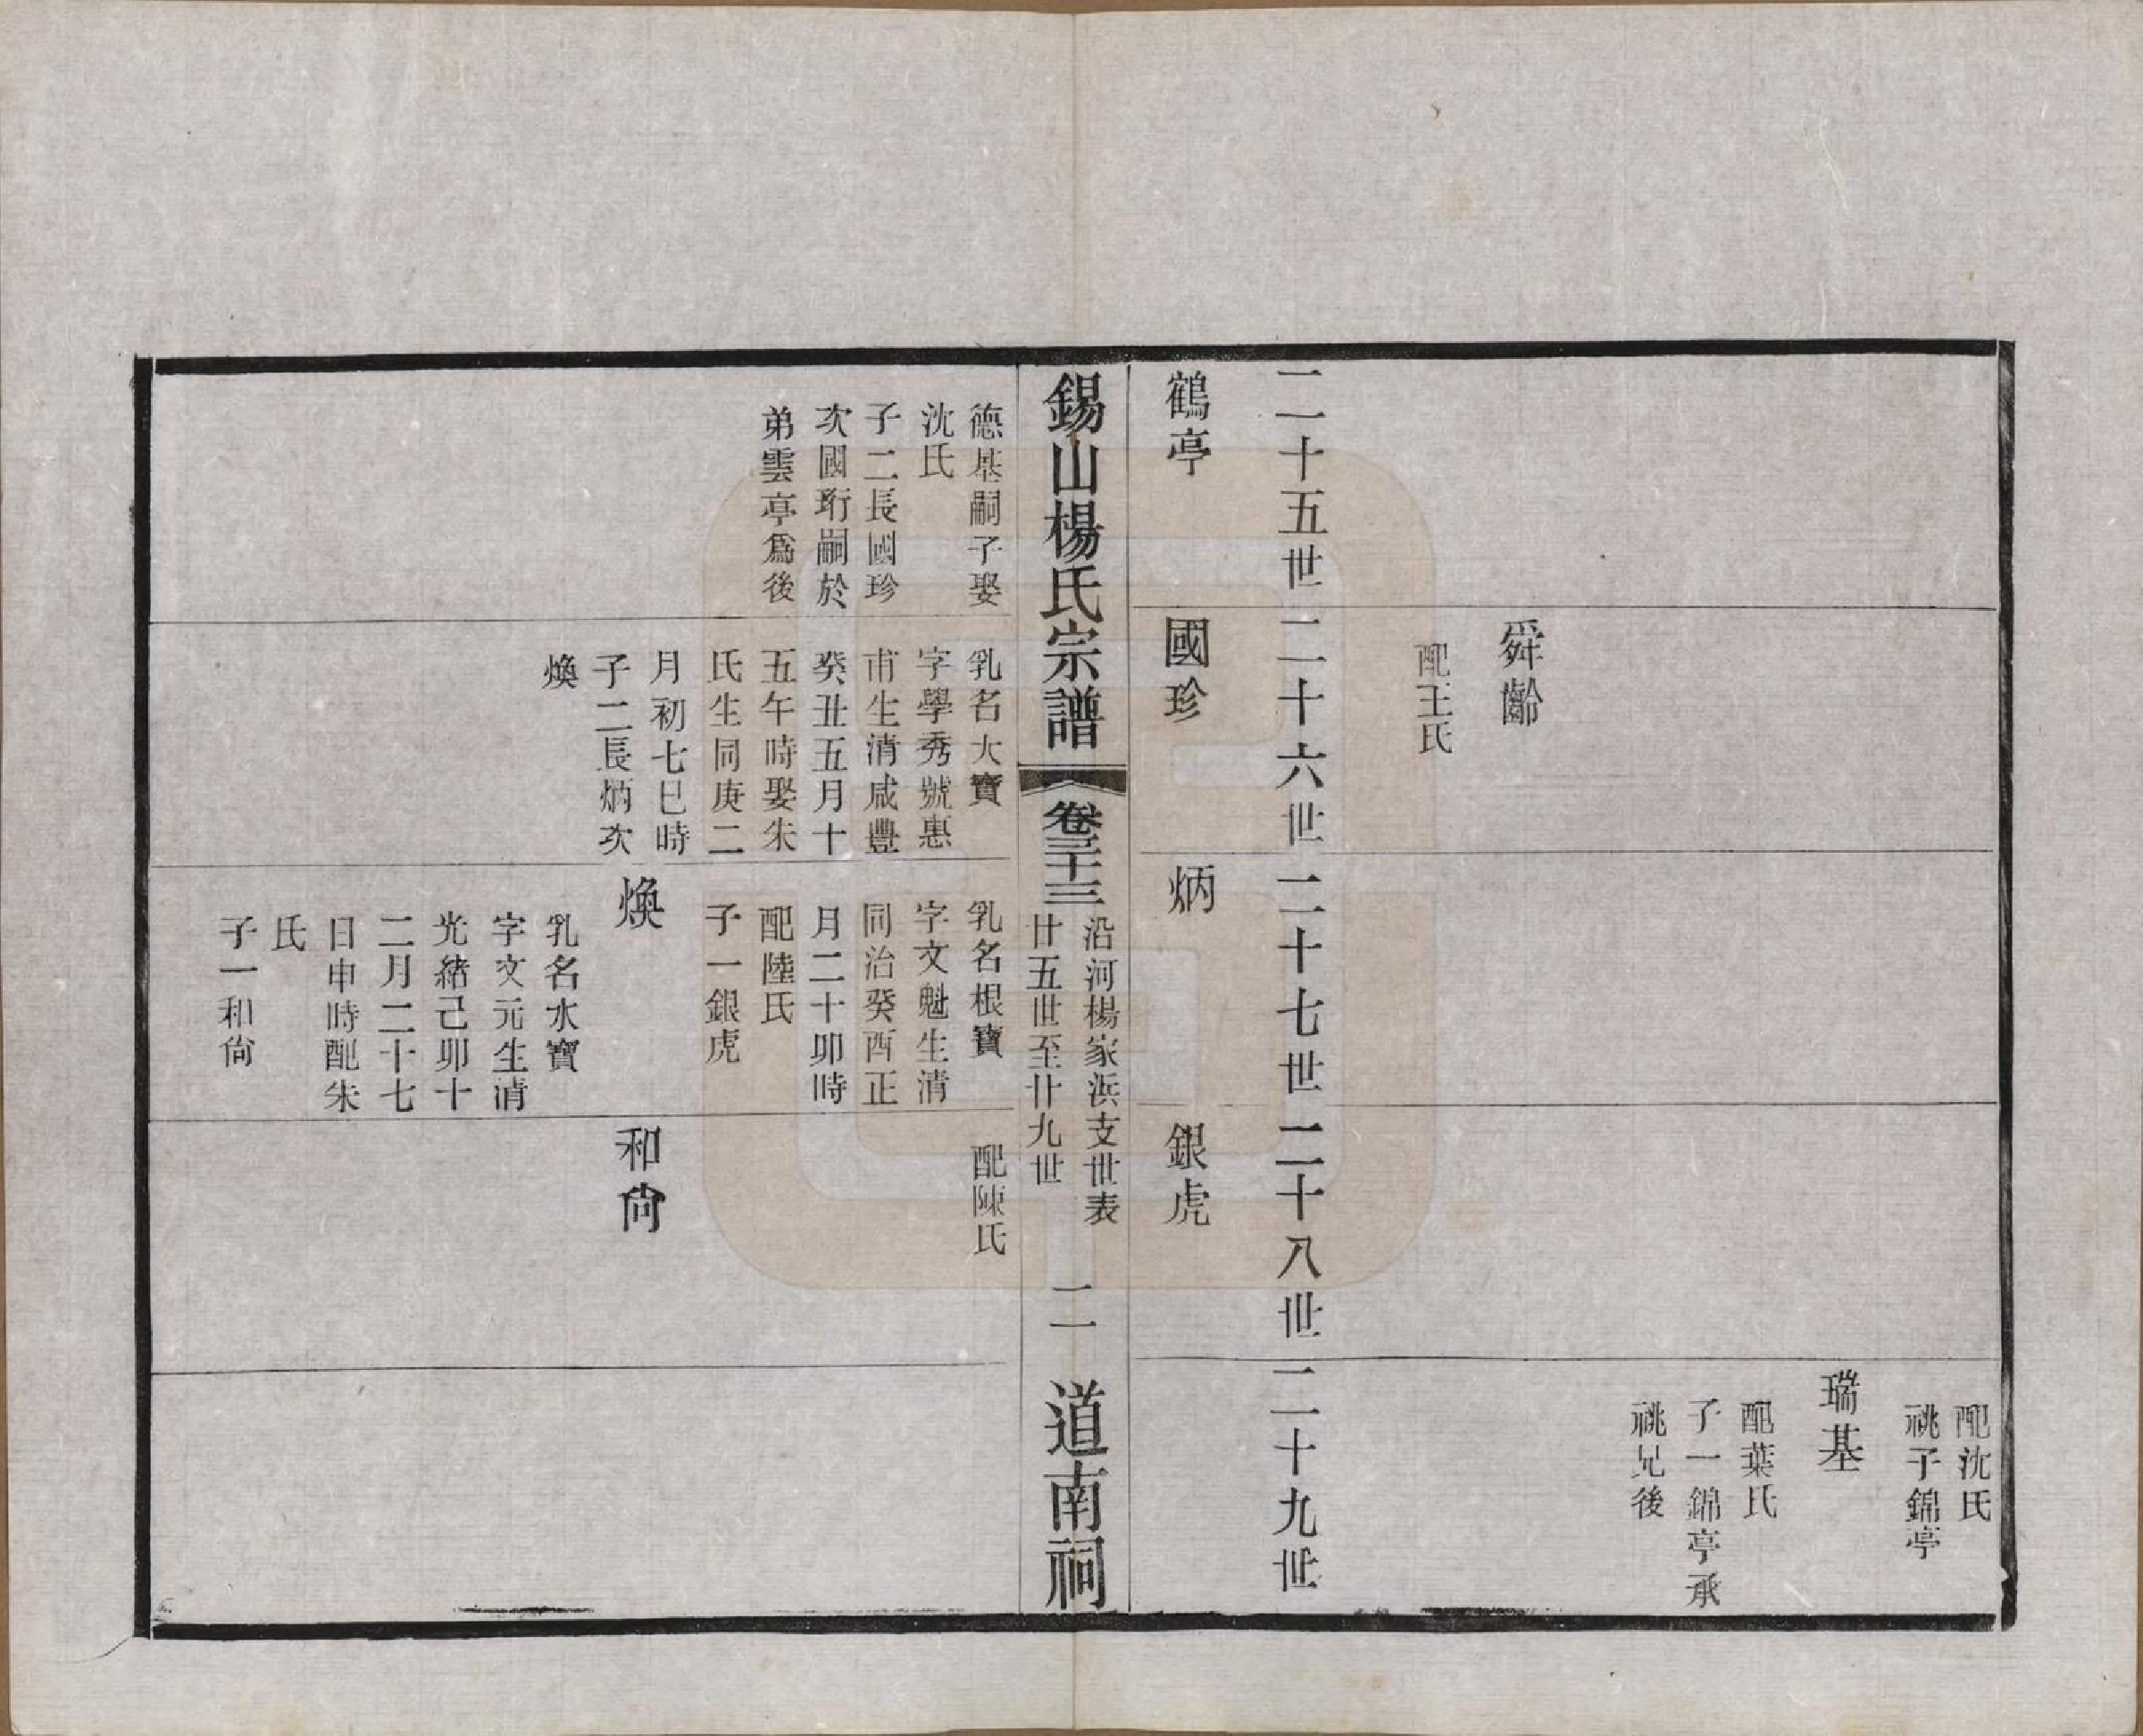 配沈氏
祧子錦亭
瑞基
配葉氏
子一錦亭承
祧兄後
舜齡
配王氏
二十五世
二十六世
二十七世
二十八世
二十九世
鶴亭
國珍
炳
銀虎
錫山楊氏宗譜
卷三十三
沿河楊家浜支世表
廿五世至廿九世
二
道南祠
德基嗣子娶
沈氏
子二長國珍
次國珩嗣於
弟雲亭爲後
乳名大寶
字學秀號惠
甫生清咸豐
癸丑五月十
五午時娶朱
氏生同庚二
月初七巳時
子二長炳次
煥
乳名根寶
字文魁生清
同治癸酉正
月二十卯時
配陸氏
子一銀虎
煥
乳名水寶
字文元生清
光緒己卯十
二月二十七
日申時配朱
氏
子一和尙
配陳氏
和尙